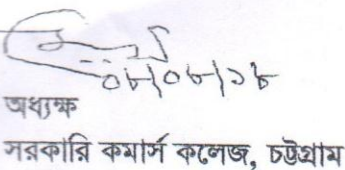 ০৮/০৮/১৮
অধ্যক্ষ
সরকারি কমার্স কলেজ, চট্টগ্রাম